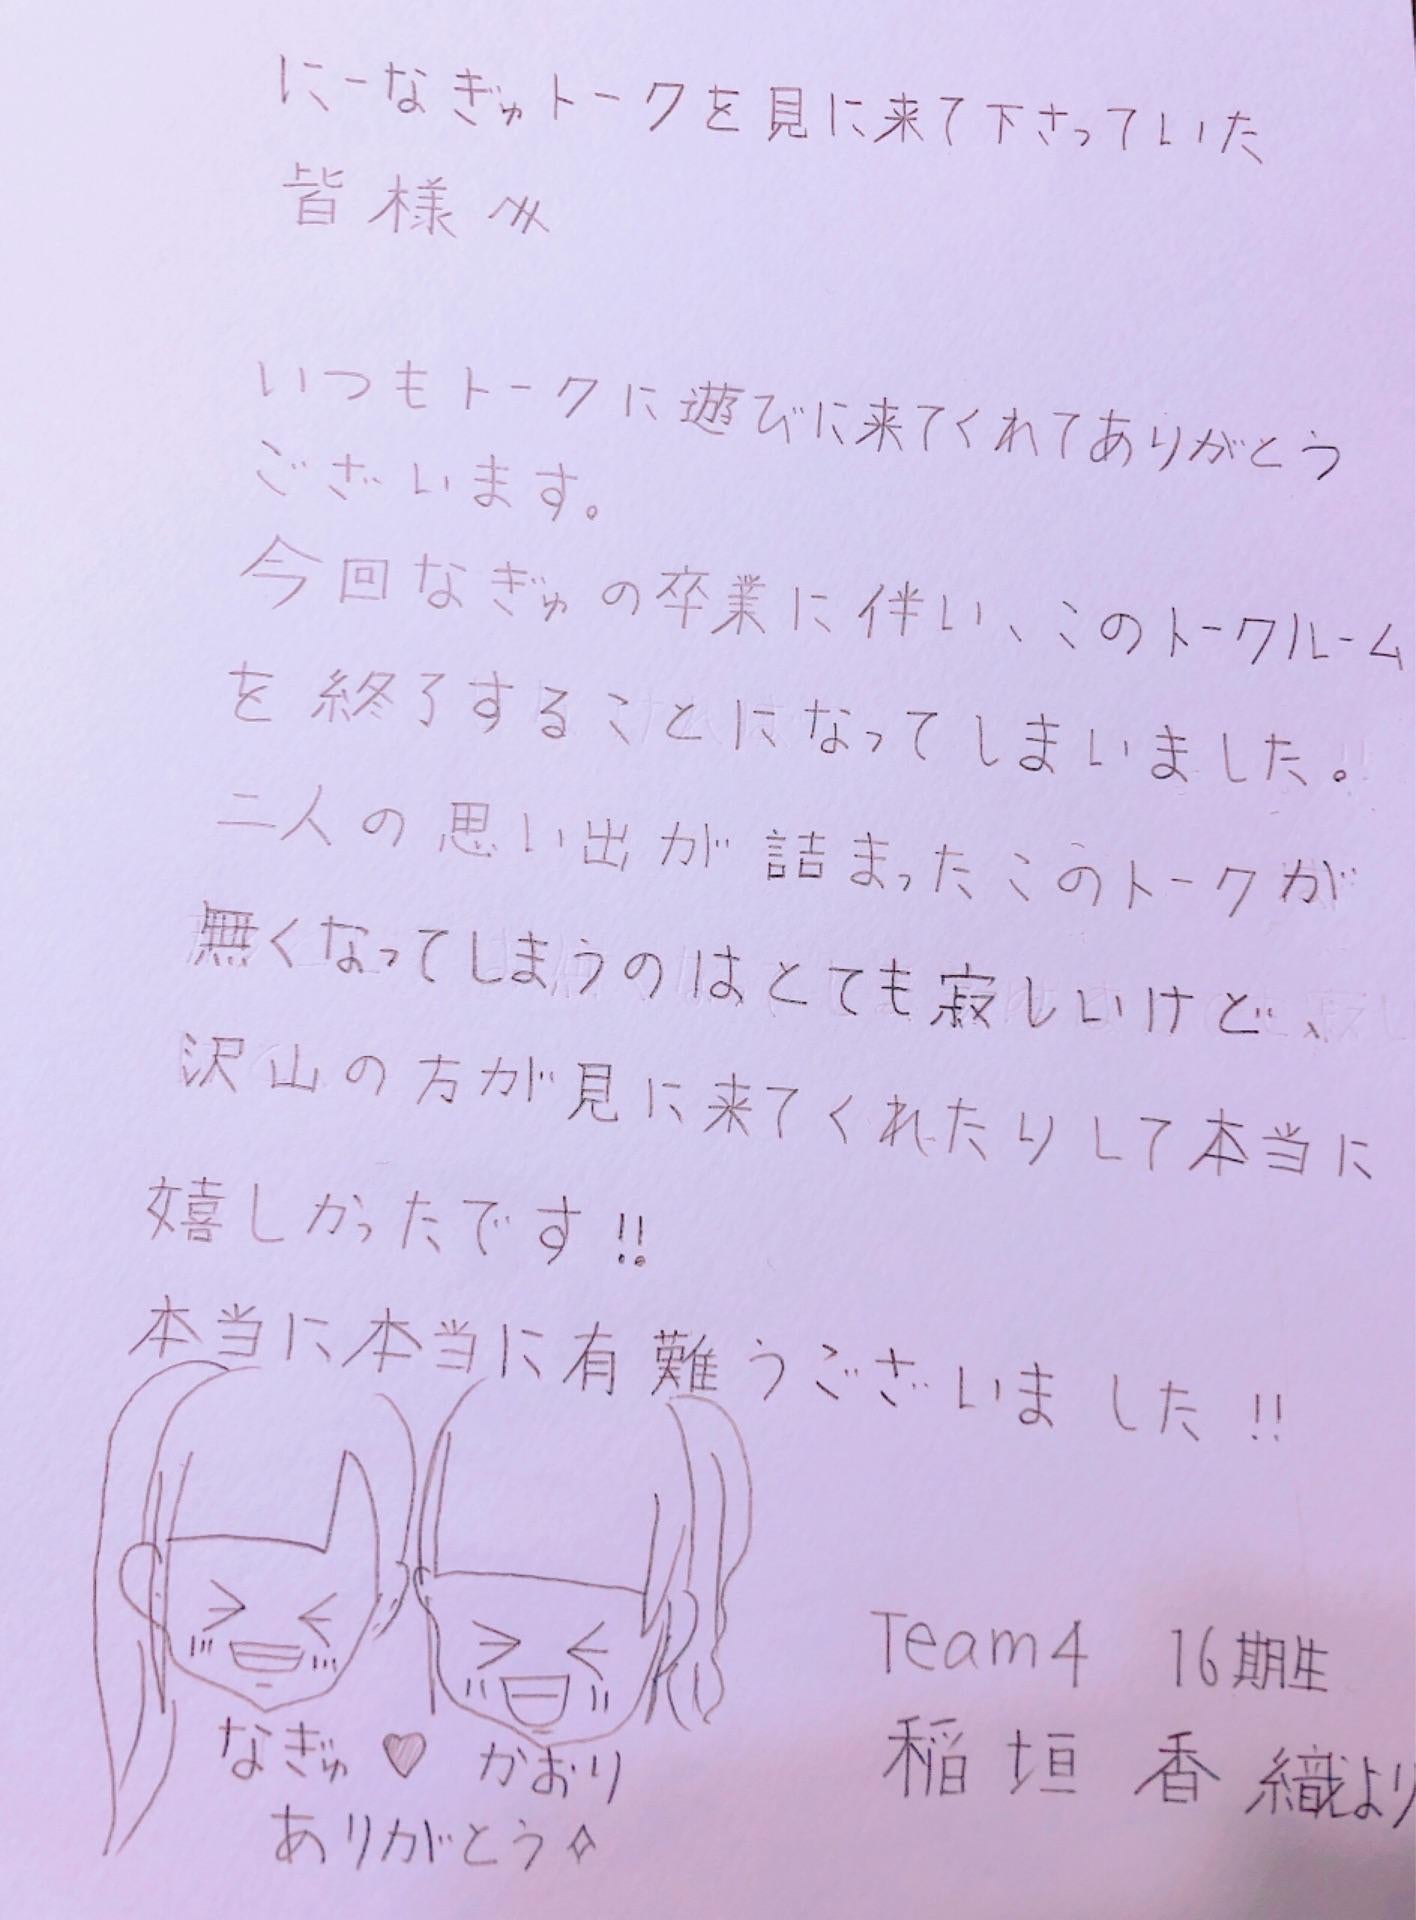 にーなぎゅトークを見に来て下さっていた
皆様へ
いつもトークに遊びに来てくれてありがとう
ございます。
今回なぎゅの卒業に伴い、このトークルーム
を終了することになってしまいました。
二人の思い出が詰まったこのトークが
無くなってしまうのはとても寂しいけど、
沢山の方が見に来てくれたりして本当に
嬉しかったです!!
本当に本当に有難うございました!!
Team4 16期生
稲垣香織より
なぎゅ♡かおり
ありがとう✧